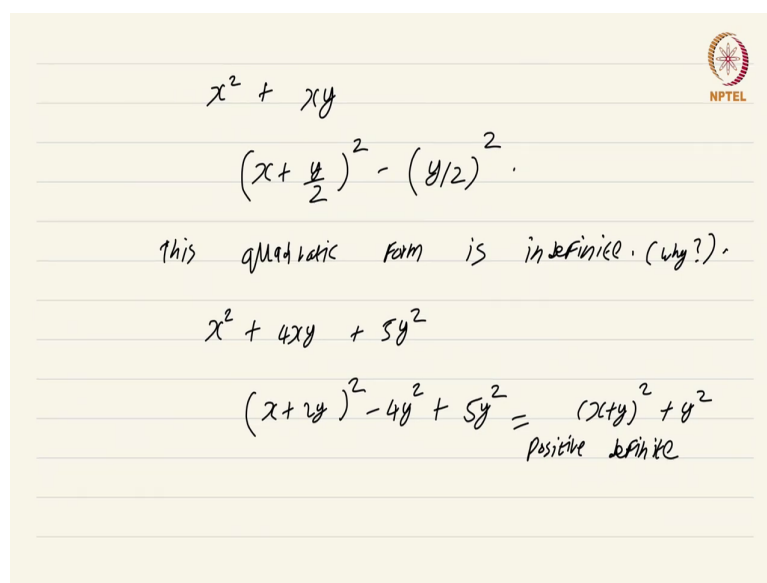 NPTEL
x² + xy
(x + y/2)² - (y/2)².
This quadratic form is indefinite. (why?).
x² + 4xy + 5y²
(x + 2y)² - 4y² + 5y² = (x+y)² + y²
Positive definite